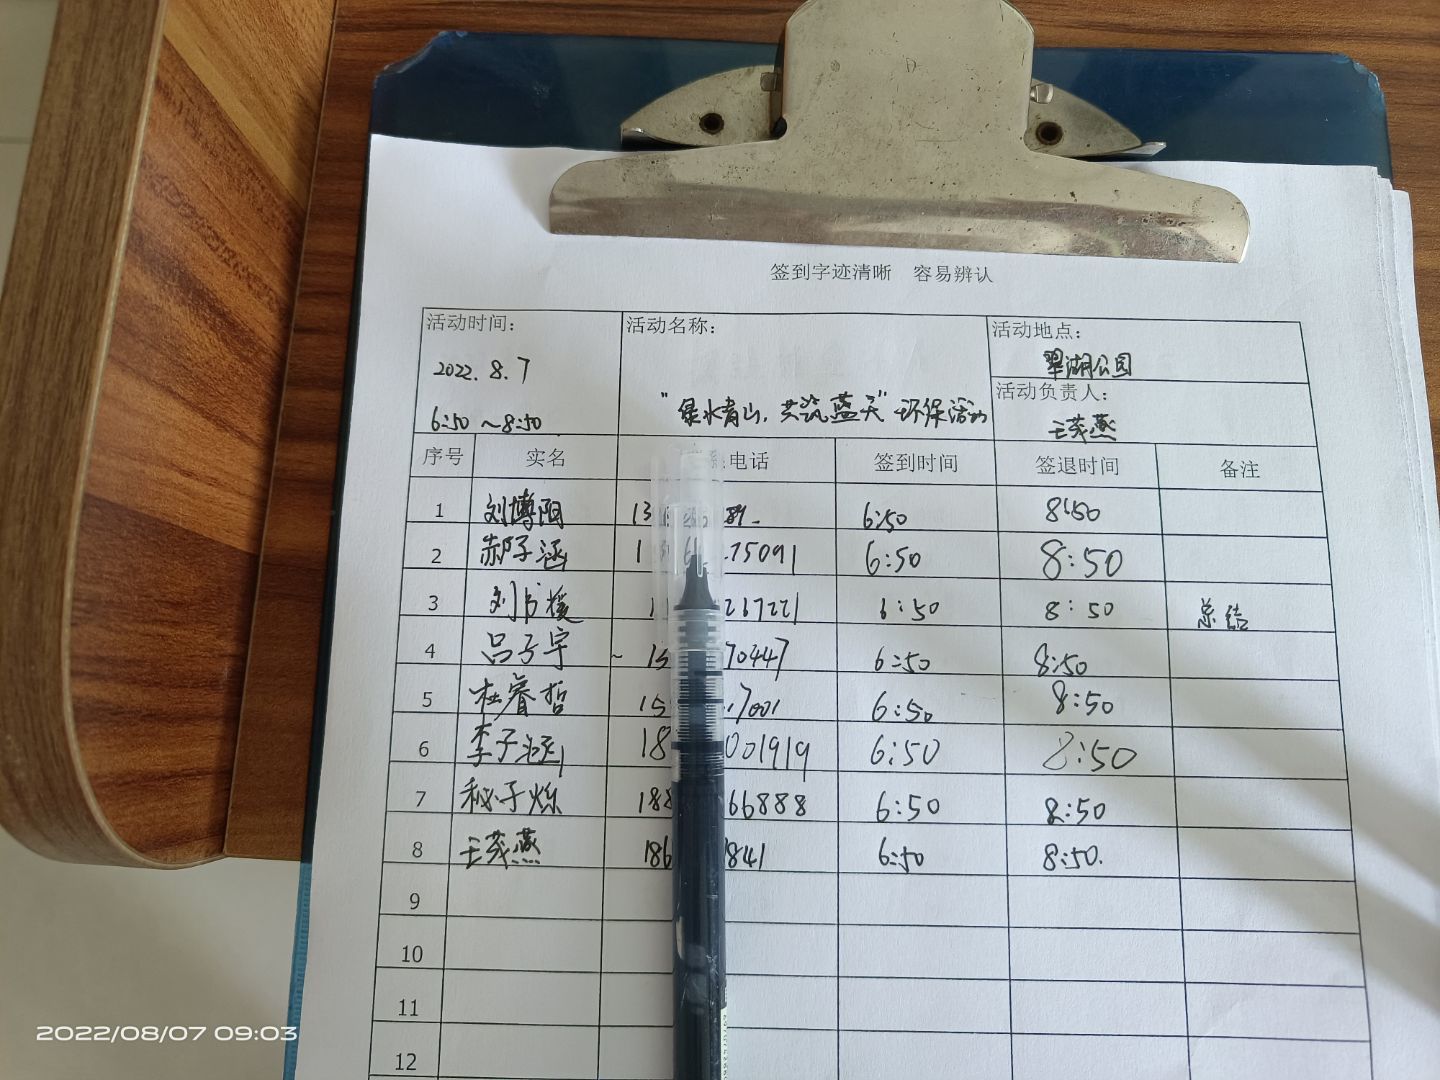 签到字迹清晰 容易辨认
活动时间： 活动名称： 活动地点：
2022.8.7 翠湖公园
活动负责人：
6:50～8:50 "绿水青山,共筑蓝天"环保活动 王茂燕
序号 实名 电话 签到时间 签退时间 备注
1 刘博阳 13 89 6:50 8:50
2 郝子涵 1 75091 6:50 8:50
3 刘书媛 1 267221 6:50 8:50 总结
4 吕子宇 ~ 15 70447 6:50 8:50
5 杜睿哲 15 7001 6:50 8:50
6 李子涵 18 001919 6:50 8:50
7 秘子烁 188 66888 6:50 8:50
8 王茂燕 186 1841 6:50 8:50.
9
10
11
12
2022/08/07 09:03